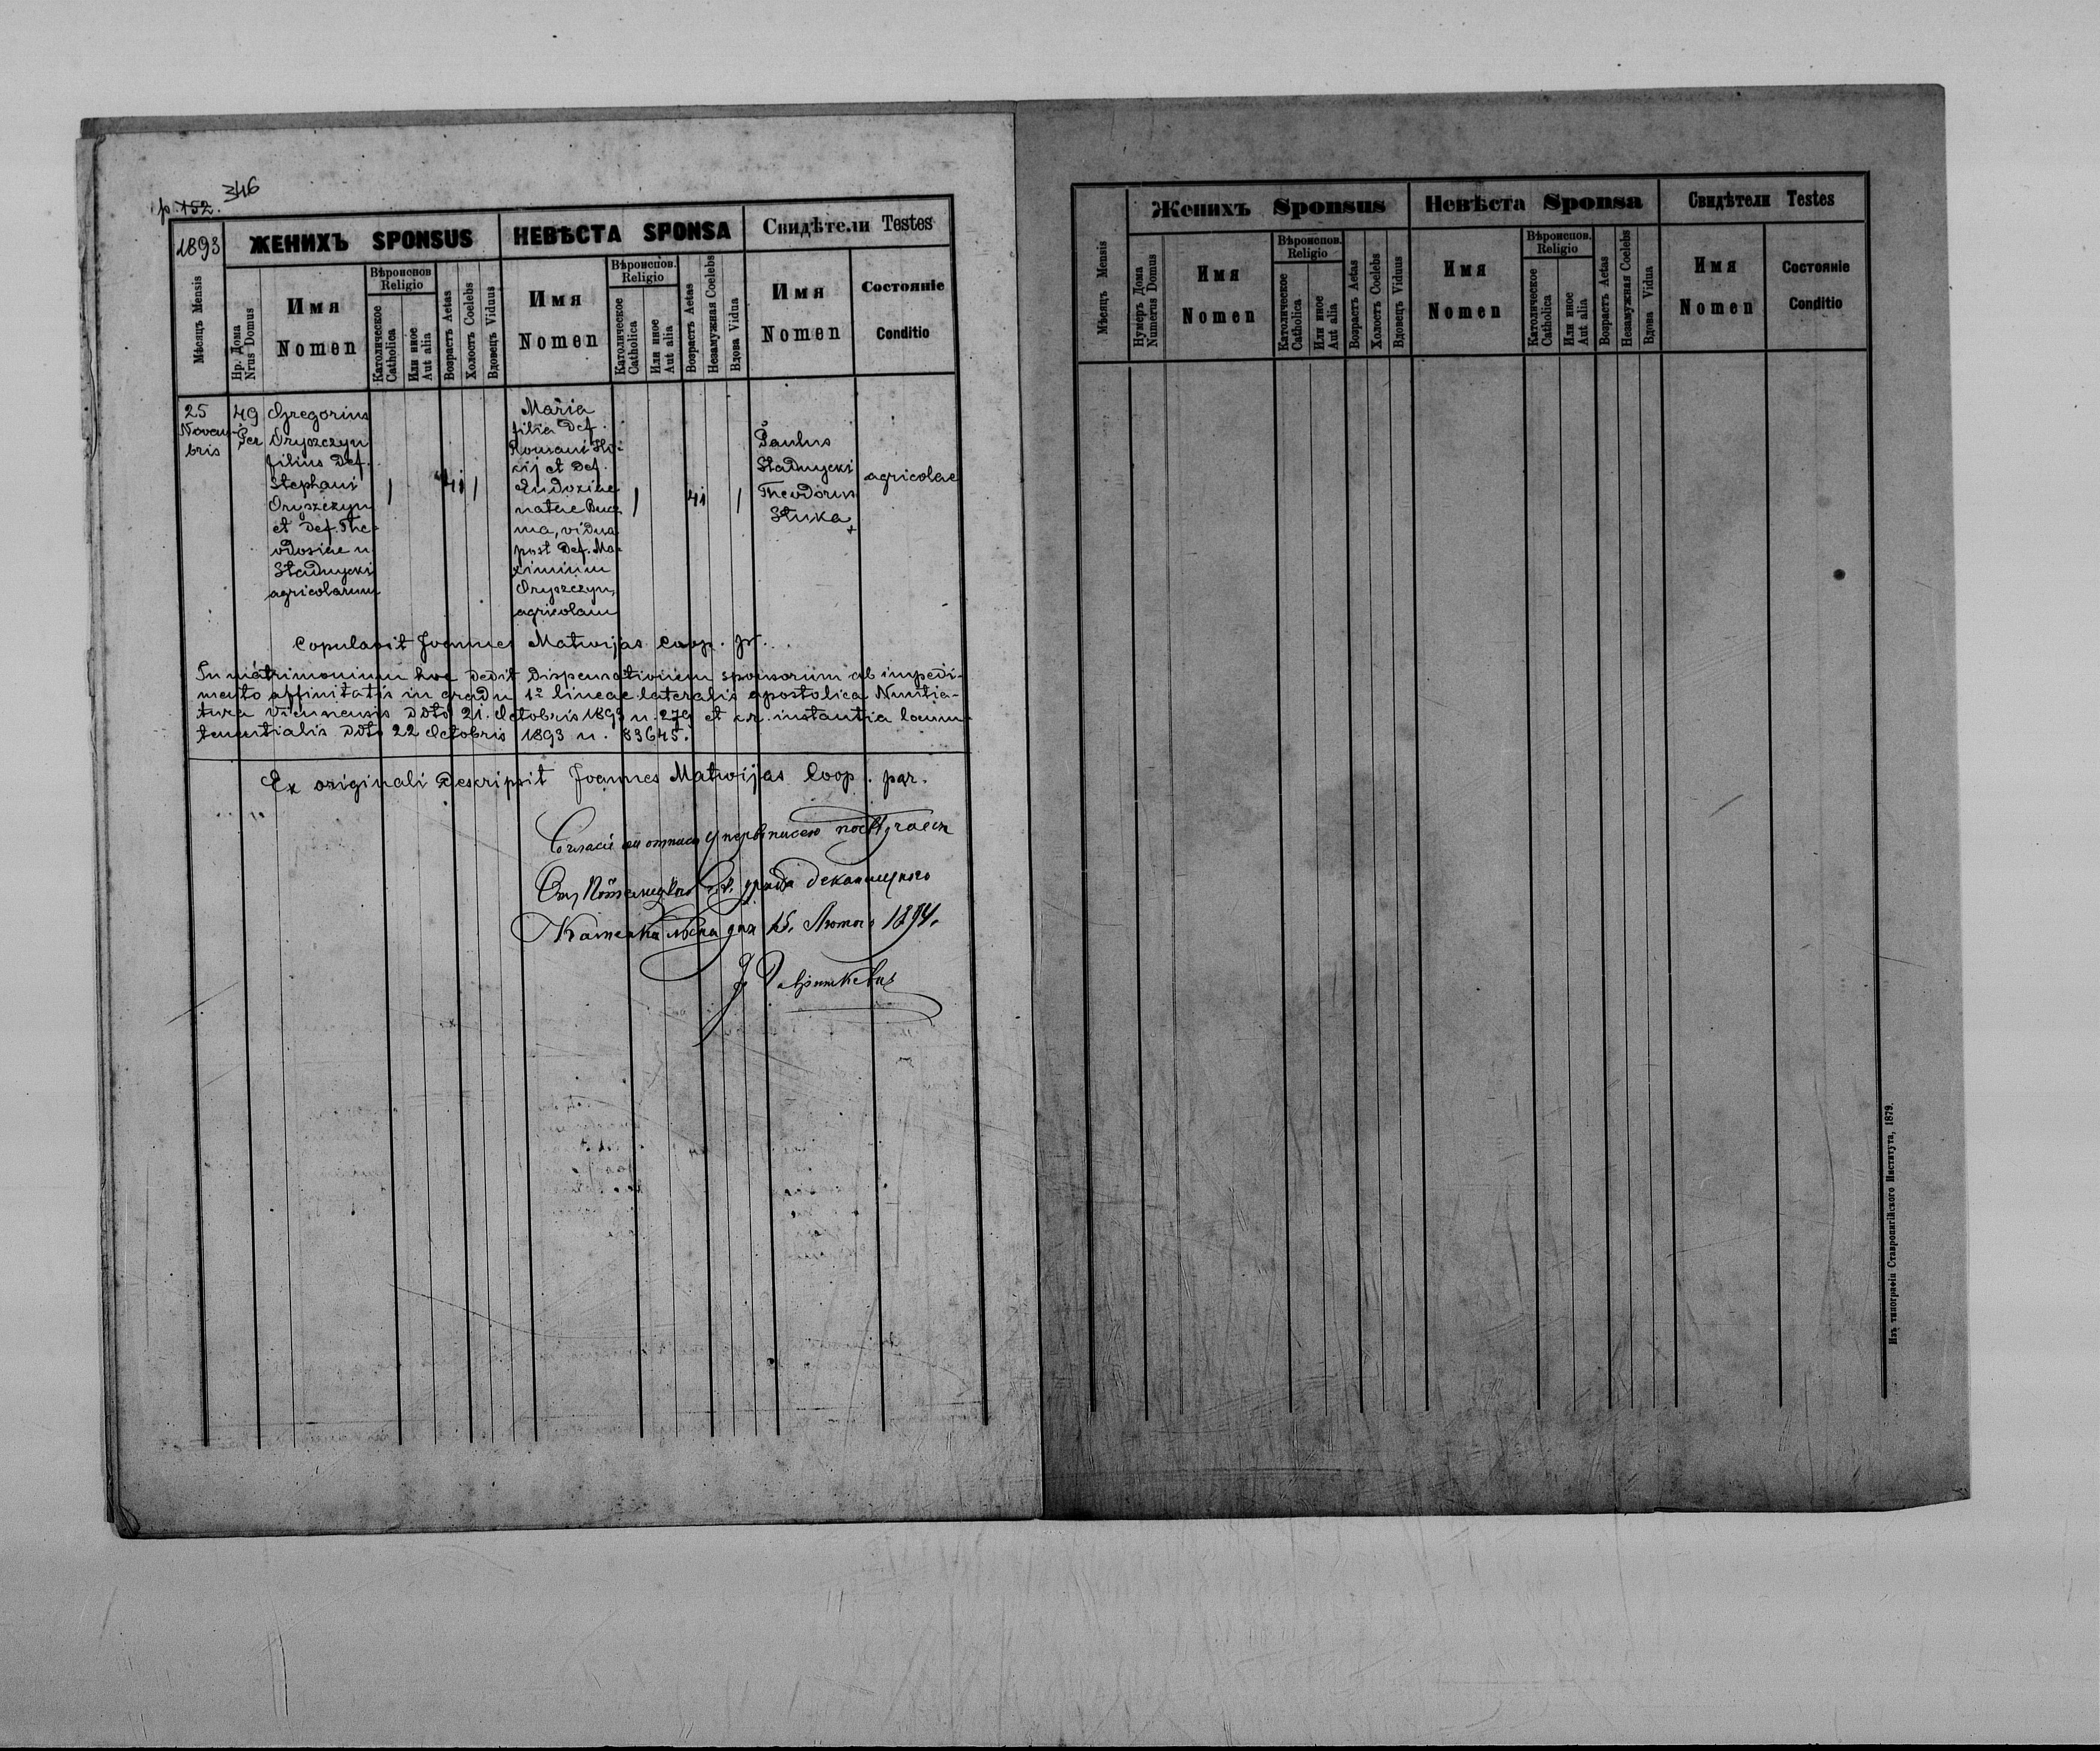 346
p. 152.
1893 ЖЕНИХЪ SPONSUS НЕВѢСТА SPONSA Свидѣтели Testes
Мѣсяцъ Mensis
Нр. Дома
Nrus Domus
Имя
Nomen
Вѣроиспов
Religio
Католическое
Catholica
Или иное
Aut alia
Возрастъ Aetas
Холостъ Coelebs
Вдовецъ Viduus
Имя
Nomen
Вѣроиспов.
Religio
Католическое
Catholica
Или иное
Aut alia
Возрастъ Aetas
Незамужная Coelebs
Вдова Vidua
Имя
Nomen
Состоянiе
Conditio
25
Novem-
bris
49
Per
Gregorius
Oryszczyn
filius def.
Stephani
Oryszczyn
et def. The-
odosiae n.
Stadnycki
agricolarum
1
41
1
Maria
filia def.
Romani
et def.
Eudoxiae
natae
vidua
post def. Ma-
ximum
Oryszczyn,
agricolam
1
41
1
Paulus
Stadnycki
Theodorus
Stuka
+
agricolae
Copulavit Joannes Matwijas Coop. pr.
In matrimonium hoc dedit dispensationem sponsorum ab impedi-
mento affinitatis in gradu 1º lineae lateralis apostolica Nuntia-
tura Viennensis ddto 21. Octobris 1893 n. 279 et c.r. instantia locum-
tenentialis ddto 22 Octobris 1893 n. 83645.
Ex originali descripsit Joannes Matwijas Coop. par.
дня 15. Лютого 1894.
Женихъ Sponsus Невѣста Sponsa Свидѣтели Testes
Мѣсяцъ Mensis
Нумеръ Дома
Numerus Domus
Имя
Nomen
Вѣроиспов.
Religio
Католическое
Catholica
Или иное
Aut alia
Возрастъ Aetas
Холостъ Coelebs
Вдовецъ Viduus
Имя
Nomen
Вѣроиспов.
Religio
Католическое
Catholica
Или иное
Aut alia
Возрастъ Aetas
Незамужная Coelebs
Вдова Vidua
Имя
Nomen
Состоянiе
Conditio
Изъ типографiи Ставропигiйского Института, 1879.